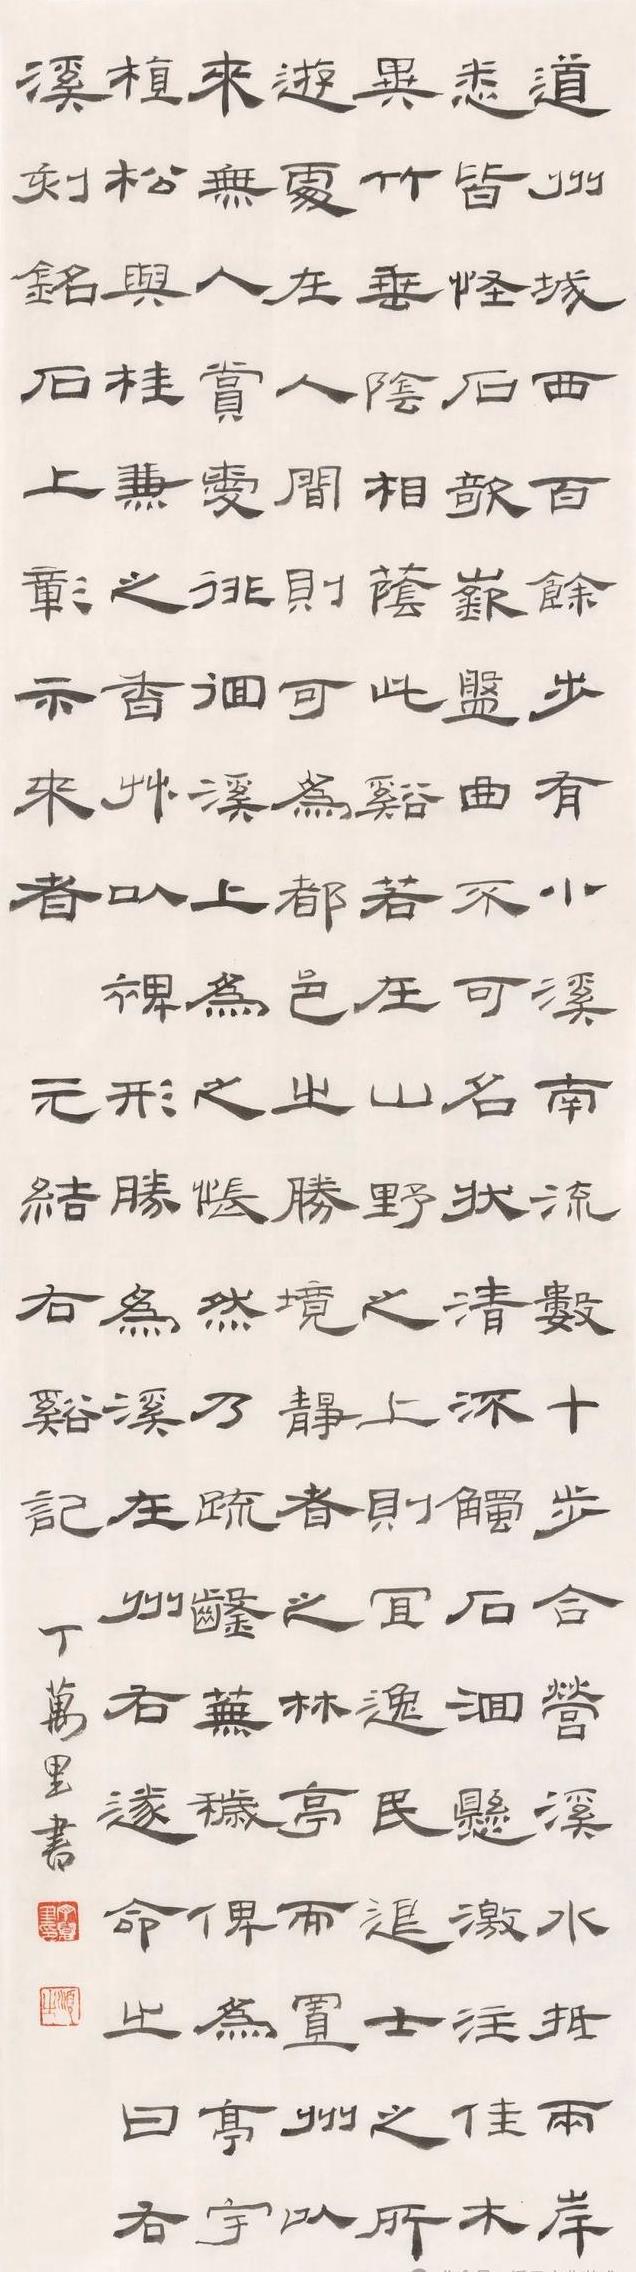 道州城西百餘步有小溪南流數十步合營溪水抵兩岸
悉皆怪石欹嵌盤曲不可名狀清流觸石洄懸激注佳木
異竹垂陰相蔭此谿若在山野之上則宜逸民退士之所
遊處在人間則可為都邑之勝境靜者之林亭而置州以
來無人賞愛徘徊溪上為之悵然乃疏鑿蕪穢俾為亭宇
植松與桂兼之香艸以裨形勝為溪在州右遂命之曰右
溪刻銘石上彰示來者 元結右谿記 丁萬里書